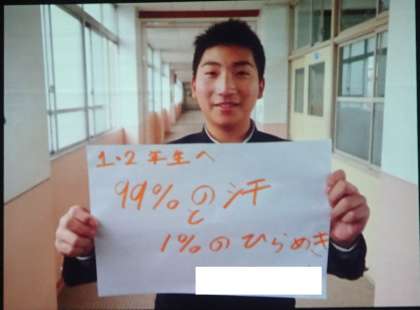 1・2年生へ
99%の汗
と
1%のひらめき